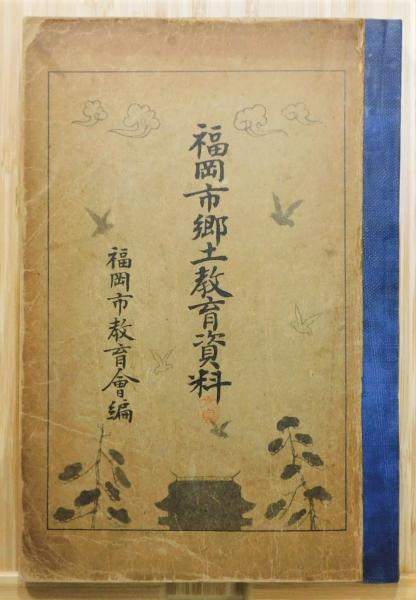 福岡市郷土教育資料
福岡市教育會編